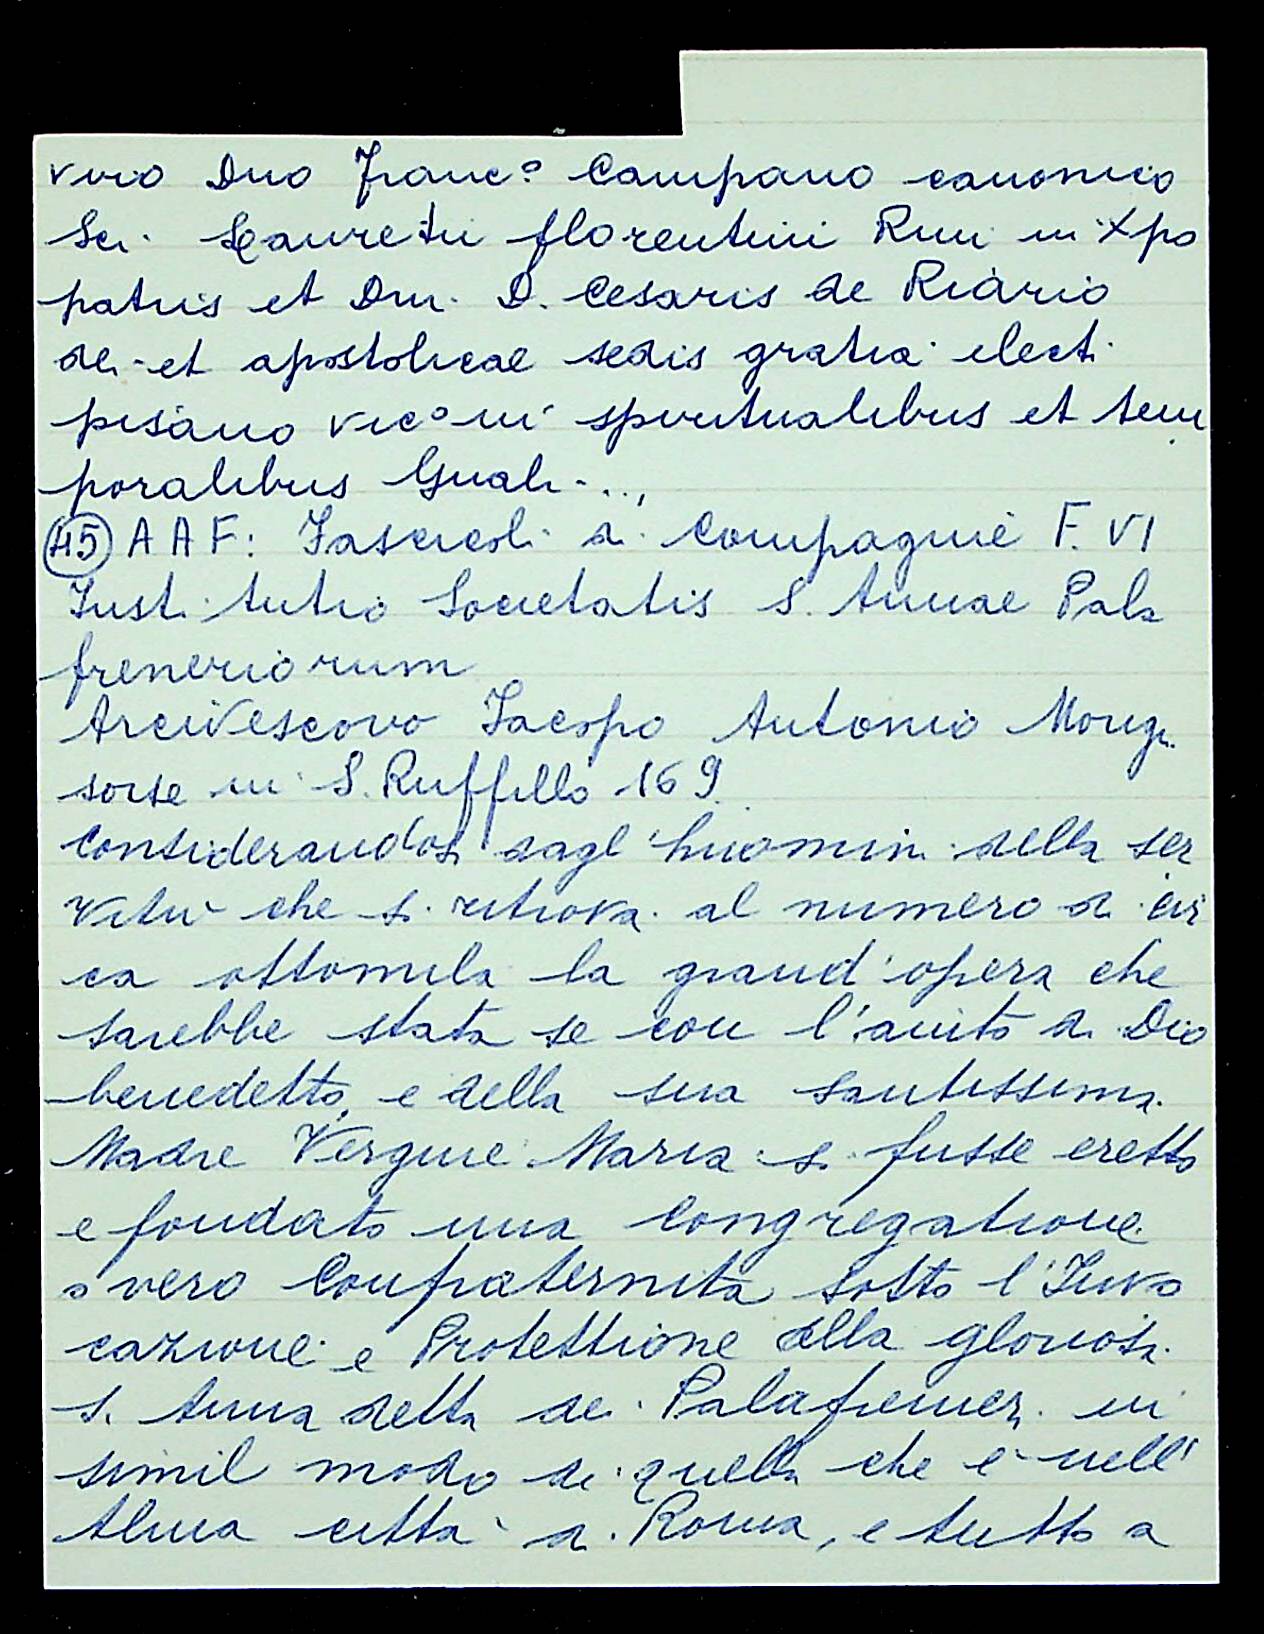 viro Dno Franc.º Campano canonico
Sci. Lauretii florentini Rmi in Xpo
patris et Dni. D. Cesaris de Riario
dei et apostolicae sedis gratia electi
pisano vicº in spiritualibus et tem
poralibus Gnali...,
(45) A A F: Fascicoli di Compagnie F. VI
Institutio Societatis S. Annae Pala
freneriorum
Arcivescovo Jacopo Antonio Morigi
sorse in S. Ruffillo 169
Considerandosi dagl'huomini della ser
vitù che si ritrova al numero di cir
ca ottomila la grand'opera che
sarebbe stata se con l'aiuto di Dio
benedetto, e della sua santissima
Madre Vergine Maria si fusse eretto
e fondato una Congregatione
o vero Confraternita sotto l'Invo
cazione e Protettione della gloriosa
S. Anna detta dei Palafrenieri in
simil modo di quella che è nell'
Alma città di Roma, e tutto a